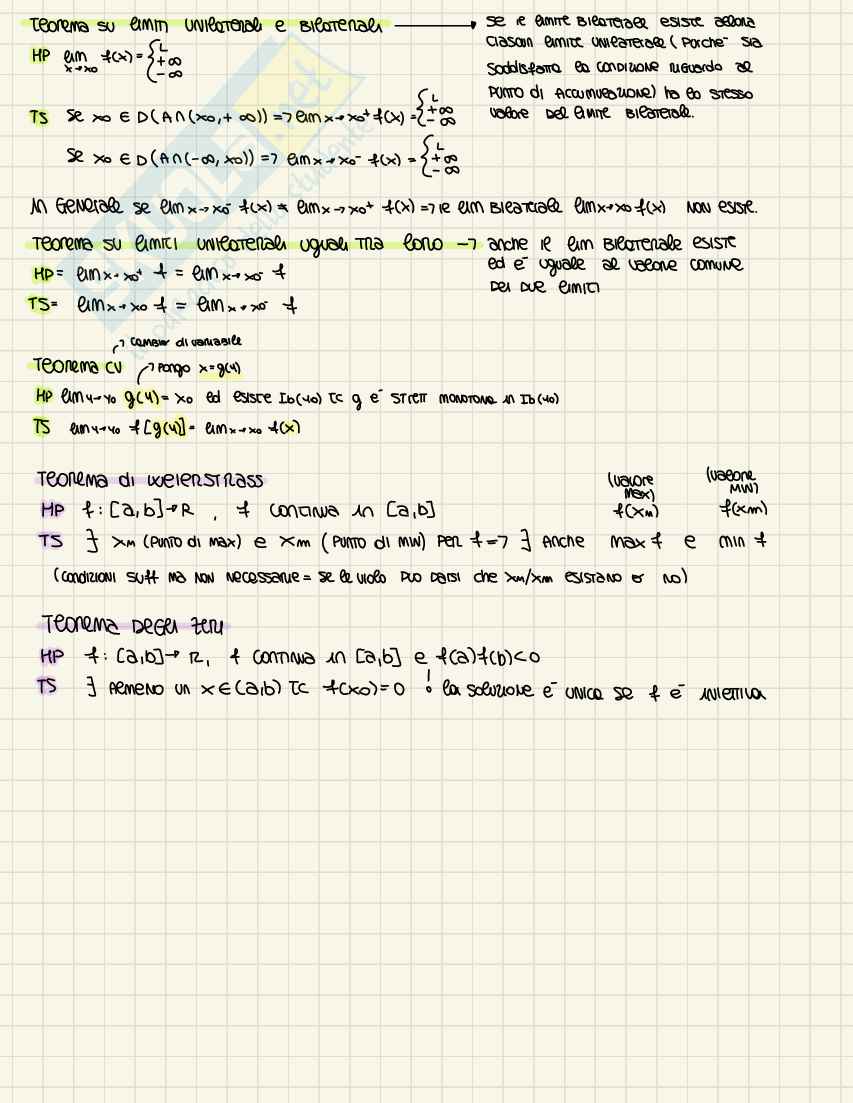 Teorema su limiti unilaterali e bilaterali → se il limite bilaterale esiste allora
ciascun limite unilaterale (purché sia
soddisfatta la condizione riguardo al
punto di accumulazione) ha lo stesso
valore del limite bilaterale.
HP lim x→x0 f(x) = { L +∞ -∞
TS se x0 ∈ D(A∩(x0,+∞)) => lim x→x0+ f(x) = { L +∞ -∞
se x0 ∈ D(A∩(-∞,x0)) => lim x→x0- f(x) = { L +∞ -∞
in generale se lim x→x0- f(x) ≠ lim x→x0+ f(x) => il lim bilaterale lim x→x0 f(x) non esiste.
Teorema su limiti unilaterali uguali tra loro → anche il lim bilaterale esiste
ed è uguale al valore comune
dei due limiti
HP= lim x→x0+ f = lim x→x0- f
TS= lim x→x0 f = lim x→x0- f
→ cambio di variabile
Teorema CV → pongo x=g(y)
HP lim y→y0 g(y) = x0 ed esiste Ib(y0) tc g è strett monotona in Ib(y0)
TS lim y→y0 f[g(y)] = lim x→x0 f(x)
Teorema di Weierstrass
(valore max) (valore min)
HP f: [a,b]→R, f continua in [a,b] f(xM) f(xm)
TS ∃ xM (punto di max) e xm (punto di min) per f => ∃ anche max f e min f
(condizioni suff ma non necessarie = se le violo può darsi che xM/xm esistano o no)
Teorema degli zeri
HP f: [a,b]→R, f continua in [a,b] e f(a)f(b)<0
TS ∃ almeno un x∈(a,b) tc f(x0)=0 ! la soluzione è unica se f è iniettiva